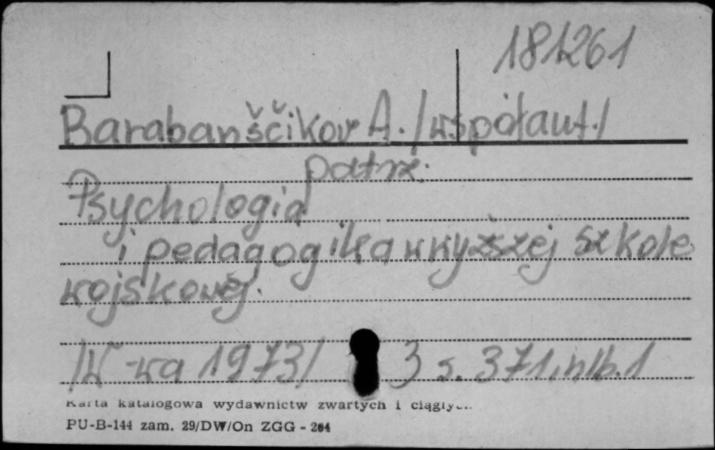 181261
Barabanščikov A. /współaut./
patrz:
Psychologia
i pedagogika w wyższej szkole
wojskowej.
/W-wa 1973/ 3 s. 371, nlb. 1
Karta katalogowa wydawnictw zwartych i ciągłych
PU-B-144 zam. 29/DW/On ZGG - 204